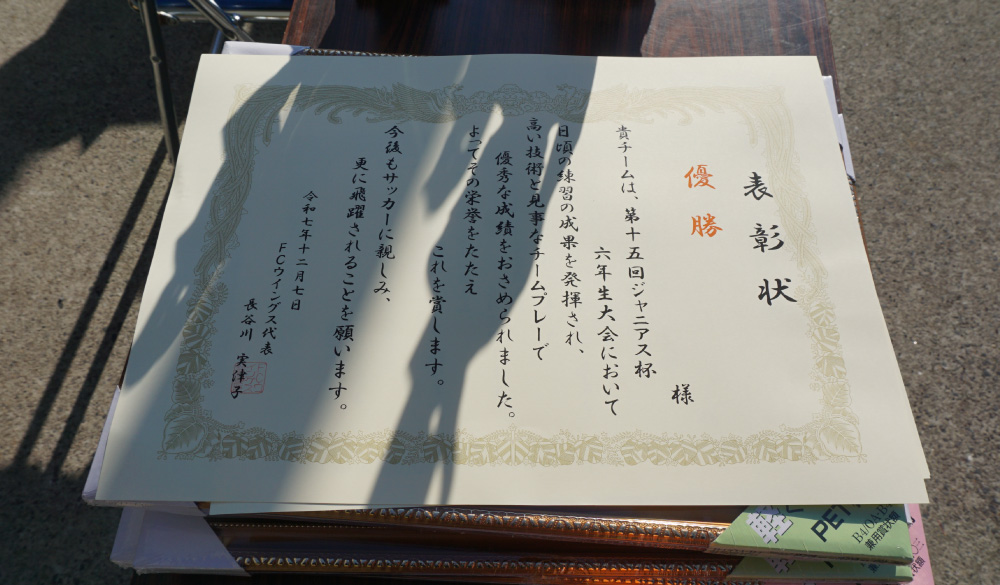 表彰状
優勝
様
貴チームは、第十五回ジャニアス杯
六年生大会において
日頃の練習の成果を発揮され、
高い技術と見事なチームプレーで
優秀な成績をおさめられました。
よってその栄誉をたたえ
これを賞します。
今後もサッカーに親しみ、
更に飛躍されることを願います。
令和七年十二月七日
FCウイングス代表
長谷川 実津子
PET
B4(OA)B
兼用賞状額